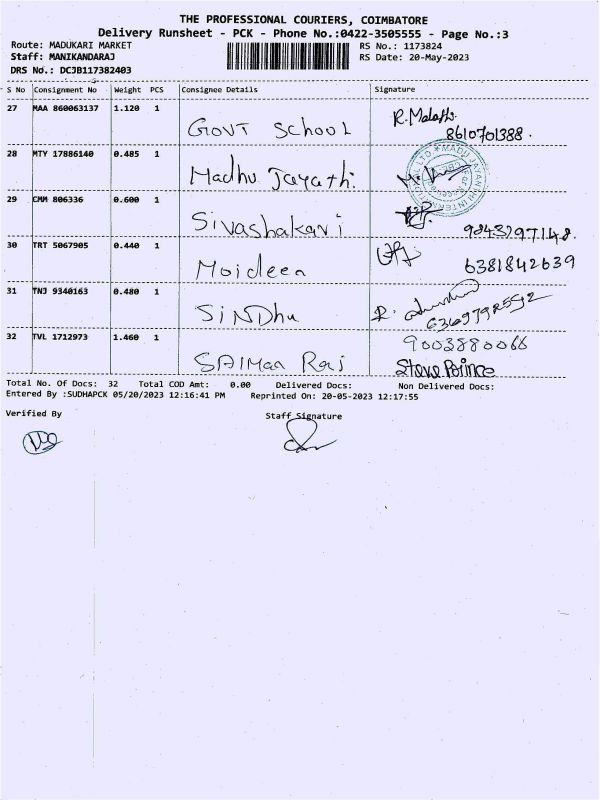 THE PROFESSIONAL COURIERS, COIMBATORE
Delivery Runsheet - PCK - Phone No.:0422-3505555 - Page No.:3
Route: MADUKARI MARKET RS No.: 1173824
Staff: MANIKANDARAJ RS Date: 20-May-2023
DRS No.: DCJB117382403
S No Consignment No Weight PCS Consignee Details Signature
27 MAA 860063137 1.120 1 GOVT School R. Malathi
8610701388.
28 MTY 17886140 0.485 1 Madhu Jayathi.
29 CMM 806336 0.600 1 Sivashakavi 9843297148.
30 TRT 5067905 0.440 1 Moideen 6381842639
31 TNJ 9340163 0.480 1 SiNDhu
32 TVL 1712973 1.460 1 SAIMan Raj 9003880066
Steve Prince
Total No. Of Docs: 32 Total COD Amt: 0.00 Delivered Docs: Non Delivered Docs:
Entered By :SUDHAPCK 05/20/2023 12:16:41 PM Reprinted On: 20-05-2023 12:17:55
Verified By Staff Signature